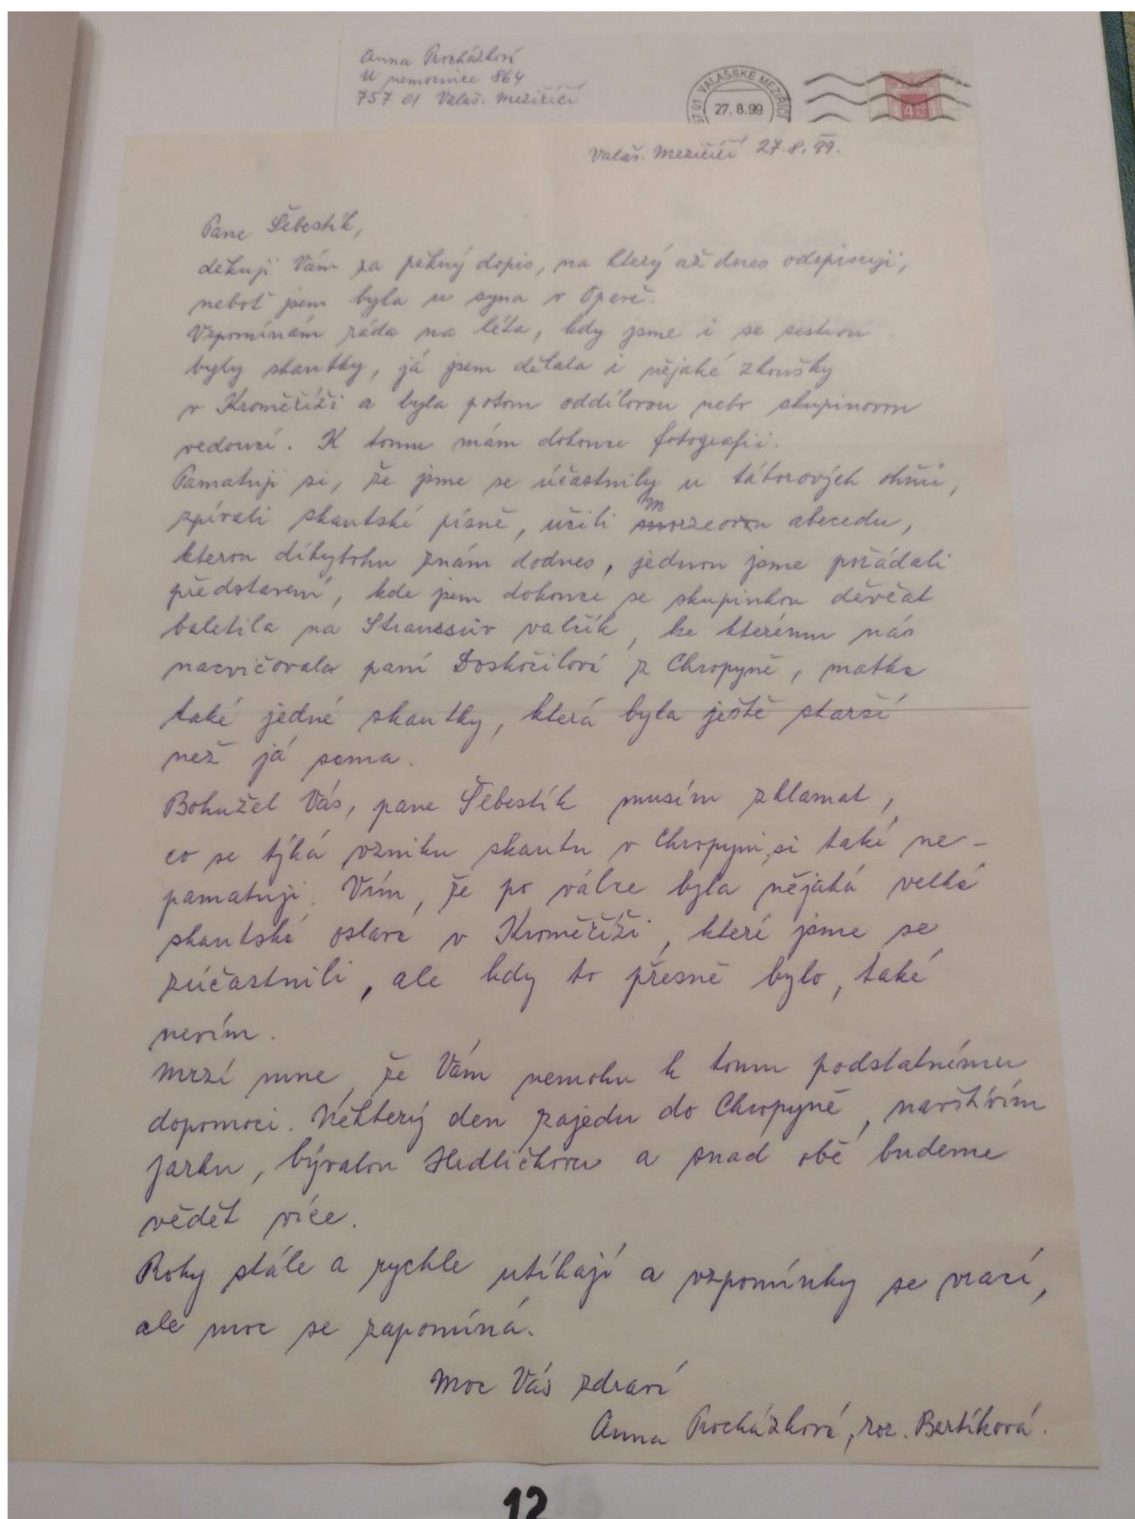 Anna Procházková
U nemocnice 864
757 01 Valaš. Meziříčí
757 01 VALAŠSKÉ MEZIŘÍČÍ
27.8.99
Valaš. Meziříčí 27.8.99.
Pane Šebestík,
děkuji Vám za pěkný dopis, na který až dnes odepisuji,
neboť jsem byla u syna v Opavě.
Vzpomínám ráda na léta, kdy jsme i se sestrou
byly skautky, já jsem dělala i nějaké zkoušky
v Kroměříži a byla potom oddílovou nebo skupinovou
vedoucí. K tomu mám dokonce fotografii.
Pamatuji si, že jsme se účastnily u táborových ohňů,
zpívali skautské písně, učili Morzeovu abecedu,
kterou díkybohu znám dodnes, jednou jsme pořádali
představení, kde jsem dokonce se skupinkou děvčat
baletila na Straussův valčík, ke kterému nás
nacvičovala paní Doskočilová z Chropyně, matka
také jedné skautky, která byla ještě starší
než já sama.
Bohužel Vás, pane Šebestík musím zklamat,
co se týká vzniku skautu v Chropyni, si také ne-
pamatuji. Vím, že po válce byla nějaká velká
skautská oslava v Kroměříži, které jsme se
zúčastnili, ale kdy to přesně bylo, také
nevím.
Mrzí mne, že Vám nemohu k tomu podstatnému
dopomoci. Některý den zajedu do Chropyně, navštívím
Jarku, bývalou Hrdličkovu a snad obě budeme
vědět více.
Roky stále a rychle utíkají a vzpomínky se vrací,
ale moc se zapomíná.
Moc Vás zdraví
Anna Procházková, roz. Bartíková.
12